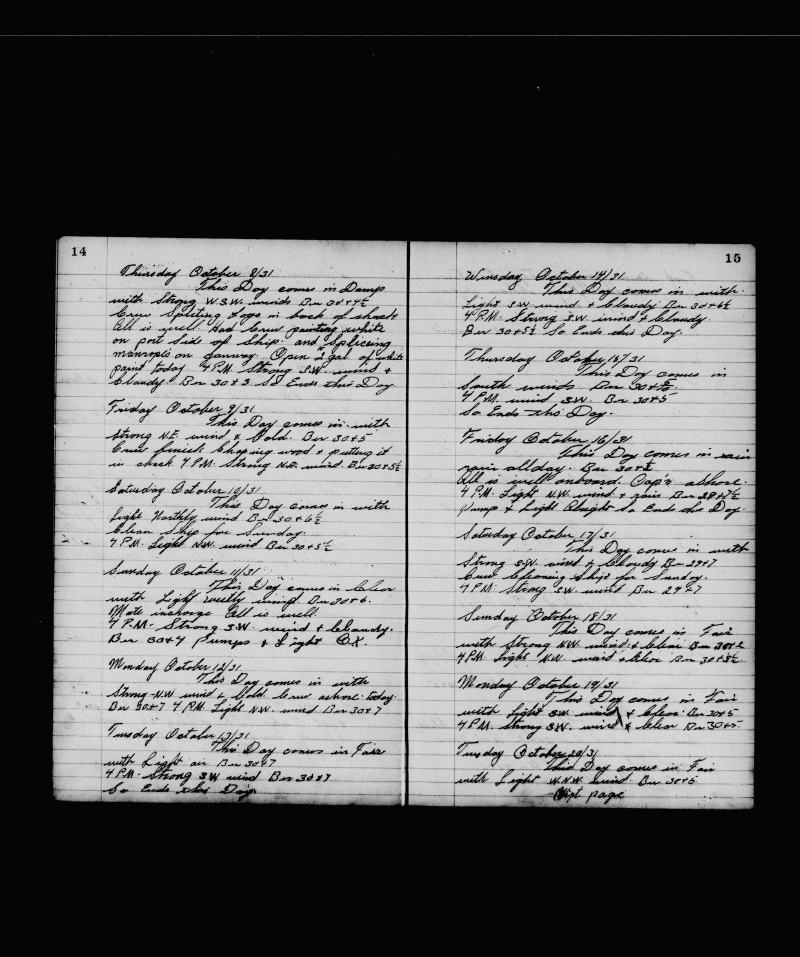 14
Thursday October 8/31
This Day comes in Damp
with Strong W.S.W. winds Bar 30+4½
Crew Spliting Logs in back of shack
All is well Had Crew painting white
on port Side of Ship. and Splicing
manropes on ganway. Open 2 gal of white
paint today 4 P.M. Strong S.W. wind &
Cloudy Bar 30+3 So Ends this Day
Friday October 9/31
This Day comes in with
strong N.E. wind & Cold. Bar 30+5
Crew finish Choping wood & putting it
in shack 4 P.M. Strong N.E. wind. Bar 30+5½
Saturday October 10/31
This Day comes in with
Light Northly wind Bar 30+6½
Clean Ship for Sunday.
4 P.M. Light N.W. wind Bar 30+5½
Sunday October 11/31
This Day comes in Clear
with Light westly wind. Bar 30+6.
Mate incharge All is well.
4 P.M. Strong S.W. wind & Cloudy.
Bar 30+7 Pumps & Light O.K.
Monday October 12/31
This Day comes in with
Strong N.W. wind & Cold Crew ashore today.
Bar 30+7 4 P.M. Light N.W. wind Bar 30+7
Tuesday October 13/31
This Day comes in Fair
with Light air Bar 30+7
4 P.M. Strong S.W wind Bar 30+7
So Ends this Day
15
Winsday October 14/31
This Day comes in with
Light S.W wind & Cloudy Bar 30+6½
4 P.M. Strong S.W wind & Cloudy.
Bar 30+5½ So Ends this Day.
Thursday October 15/31
This Day comes in
South winds Bar 30+
4 P.M. wind S.W. Bar 30+5
So Ends this Day.
Friday October 16/31
This Day comes in rain
rain allday. Bar 30+½
All is well onboard. Cap'n ashore.
4 P.M. Light N.W. wind & rain Bar
Pump & Light Alright So Ends this Day
Saturday October 17/31
This Day comes in with
Strong S.W. wind & Cloudy Bar 29+7
Crew Cleaning Ship for Sunday.
4 P.M. Strong S.W wind Bar 29+7
Sunday October 18/31
This Day comes in Fair
with Strong N.W. wind & Clear Bar 30+2
4 P.M. Light N.W. wind & Clear Bar 30+3½
Monday October 19/31
This Day comes in Fair
with Light S.W. wind & Clear Bar 30+5
4 P.M. Strong S.W. wind & Clear Bar 30+5
Tuesday October 20/31
This Day comes in Fair
with Light W.N.W. wind. Bar 30+5
Next page